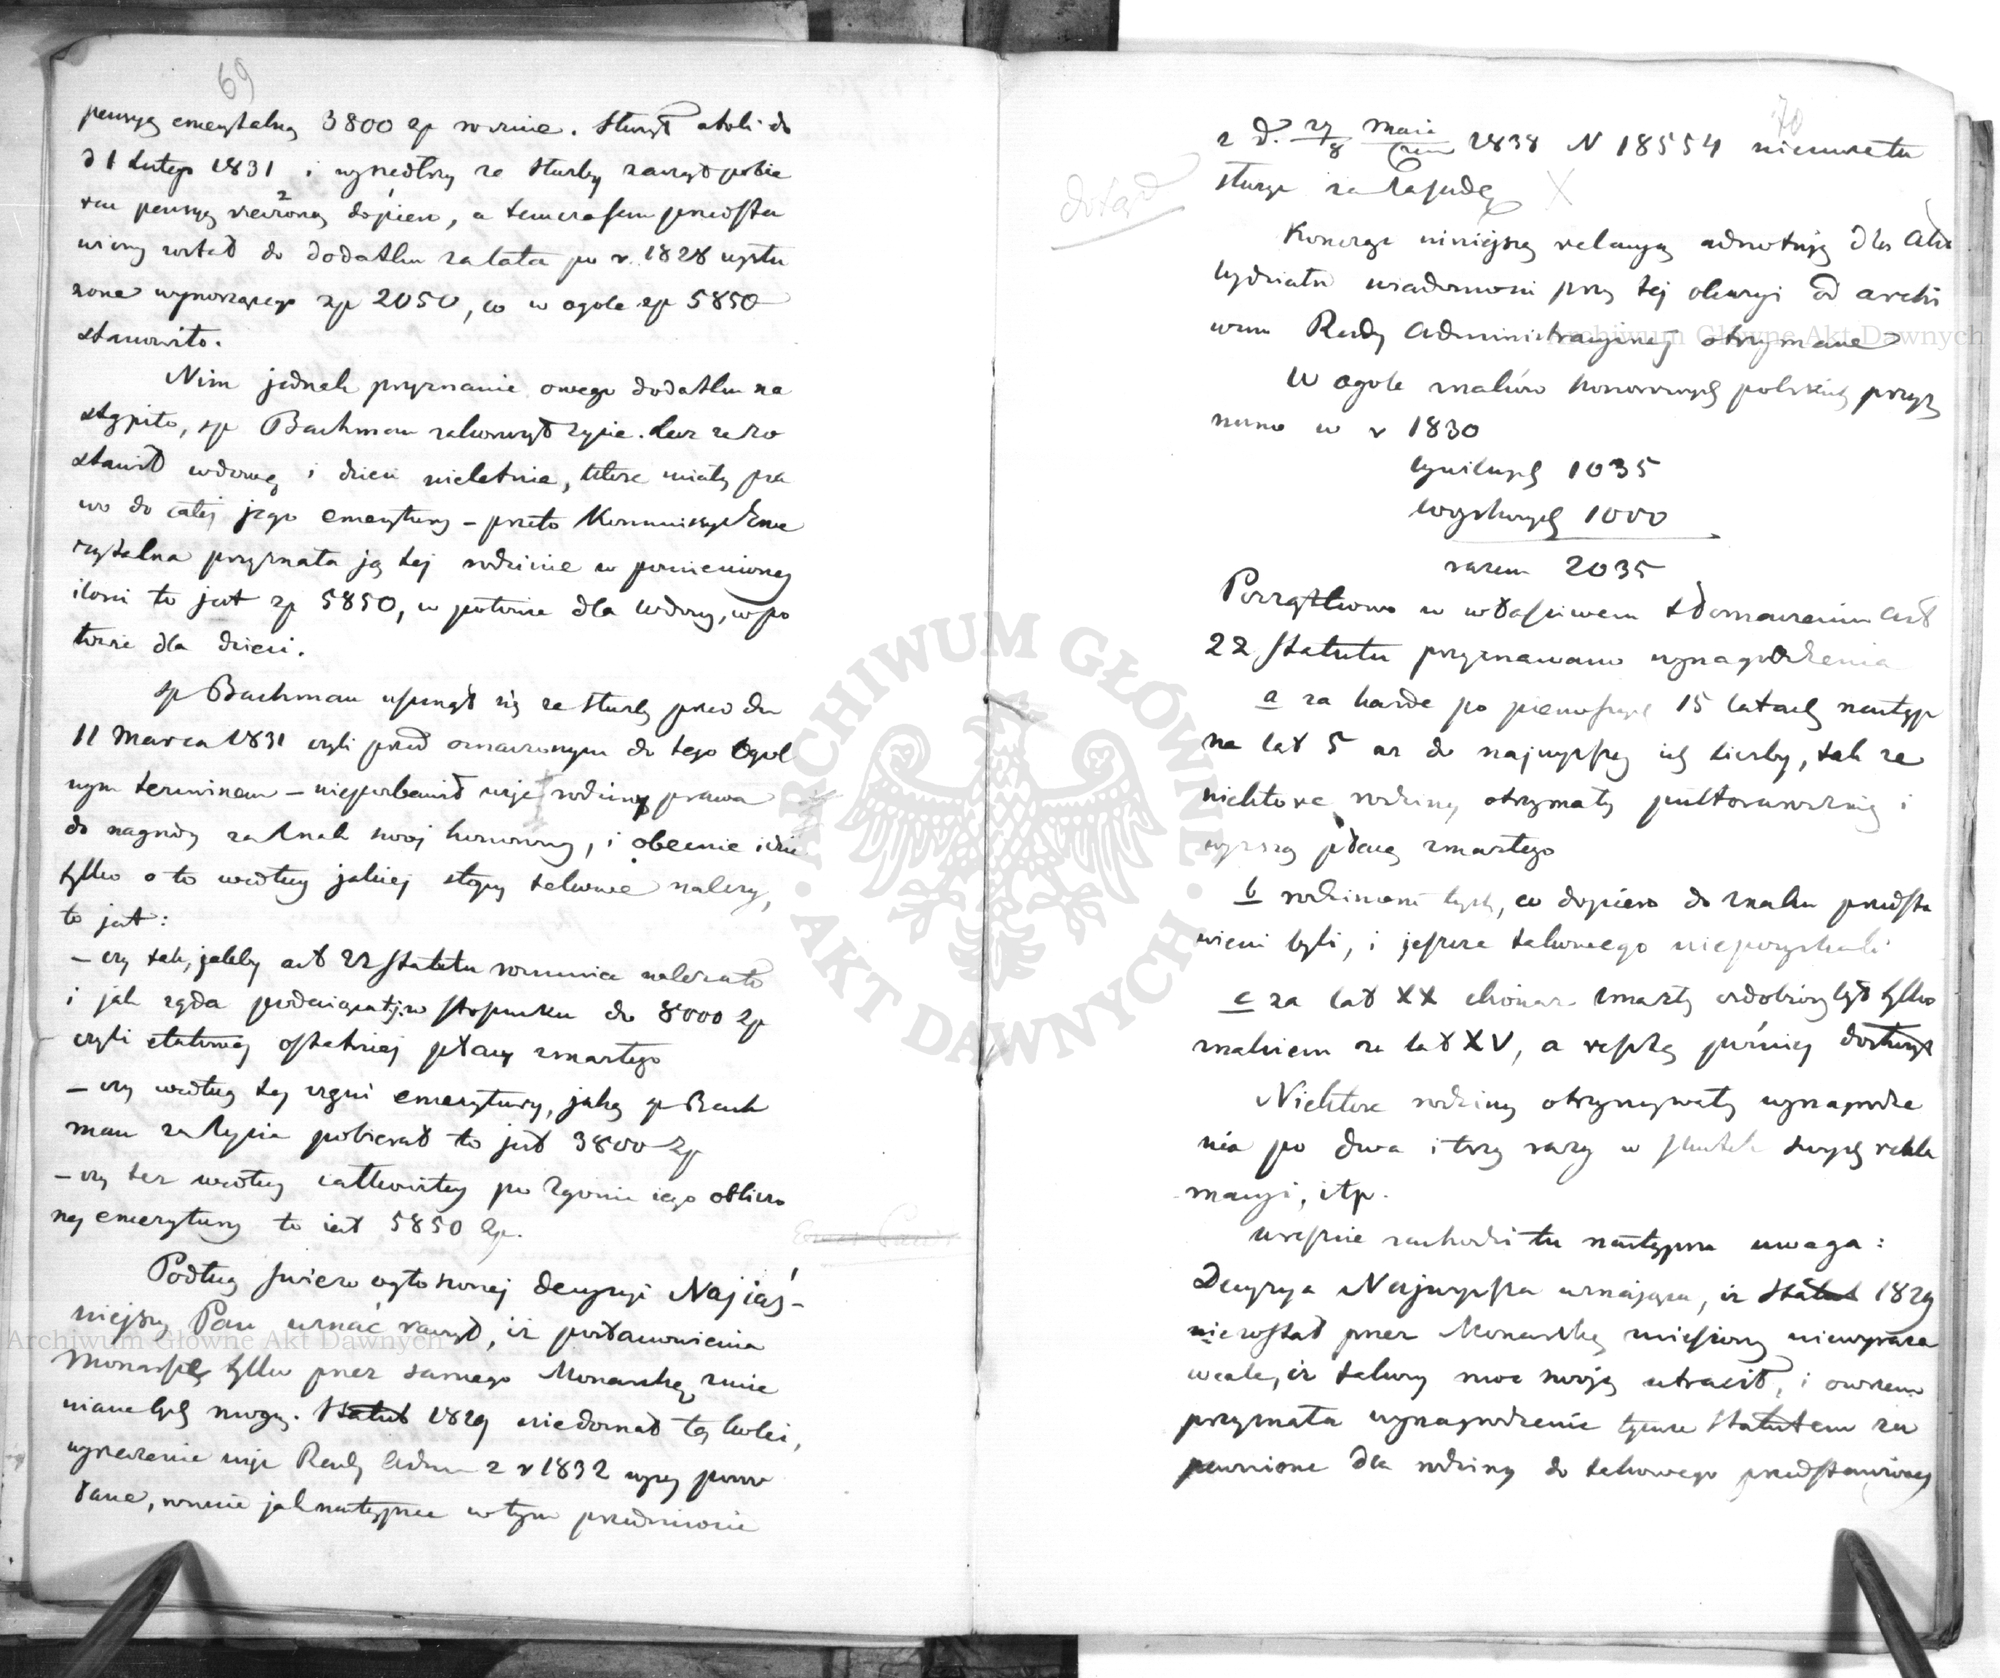 69
pensyę emerytalną 3800 zp rocznie. Służył atoli do
d 1 Lutego 1831 i wyszedłszy ze służby zaczął pobie
rać pensyę rzeczoną dopiero, a tymczasem przedsta
wiony został do dodatku za lata po r. 1828 wysłu
żone wynoszącego zp 2050, co w ogóle zp 5850
stanowiło.
Nim jednak przyznanie owego dodatku na
stąpiło, sp Bachman zakończył życie. Lecz zezo
stawił wdowę i dzieci nieletnie, które miały pra
wo do całej jego emerytury – przeto Kommissya Eme
rytalna przyznała ją tej rodzinie w pomienionej
ilości to jest zp 5850, w połowie dla wdowy, w po
łowie dla dzieci.
sp Bachman usunął się ze służby przed dn
11 Marca 1831 czyli przed oznaczonym do tego ogól
nym terminem – niepozbawił więc rodziny prawa
do nagrody za Znak swój honorowy, i obecnie idzie
tylko o to według jakiej stopy takowe należy,
to jest:
– czy tak, jakby art 22 statutu rozumieć należało
i jak żąda podciągając w stosunku do 8000 zp
czyli etatowej ostatniej płacy zmarłego
– czy według tej części emerytury, jaką sp Bach
man za życia pobierał to jest 3800 zp
– czy też według całkowitej po zgonie jego obliczo
nej emerytury to jest 5850 zp.
Podług świeżo ogłoszonej decyzyi Najjaś-
niejszy Pan uznać raczył, iż postanowienia
Monarsze tylko przez samego Monarchę zmie
niane być mogą. Statut 1829 niedoznał tej kolei,
wyrzeczenie więc Rady Adm z r 1832 wyżej powo
łane, równie jak następne w tym przedmiocie
70
z d. 27/8 Maja/Czerw 1838 N 18554 nieuwzglę
służy za zasadę X
dotąd
Koncząc niniejszą relacyą adnotuję dla
Wydziału wiadomości przy tej okazyi od archi
wum Rady Administracyjnej otrzymane
W ogóle znaków honorowych polskich przyz
nano w r 1830
cywilnych 1035
wojskowych 1000
razem 2035
Początkowo w właściwem tłomaczeniu art
22 statutu przyznawano wynagrodzenia
a za każde po pierwszych 15 latach następ
ne lat 5 aż do najwyższej ich liczby, tak że
niektóre rodziny otrzymały półtoraroczną i
wyższą płacę zmarłego
b rodzinom tych, co dopiero do znaku przedsta
wieni byli, i jeszcze takowego nieposzyskali
c za lat XX chociaż zmarły ozdobiony był tylko
znakiem za lat XV, a resztę później dosłużył
Niektóre rodziny otrzymywały wynagrodze
nia po dwa i trzy razy w skutek swych rekla
macyi, itp.
wreszcie zachodzi tu następna uwaga:
Decyzya Najwyższa uznająca, iż statut 1829
niezostał przez Monarchę zniesiony, niewyraża
wcale, iż takowy moc swoją utracił, i owszem
przyznała wynagrodzenie tymże statutem za
pewnione dla rodziny do takowego przedstawionej
Archiwum Główne Akt Dawnych
Archiwum Główne Akt Dawnych
ARCHIWUM GŁÓWNE · AKT DAWNYCH ·